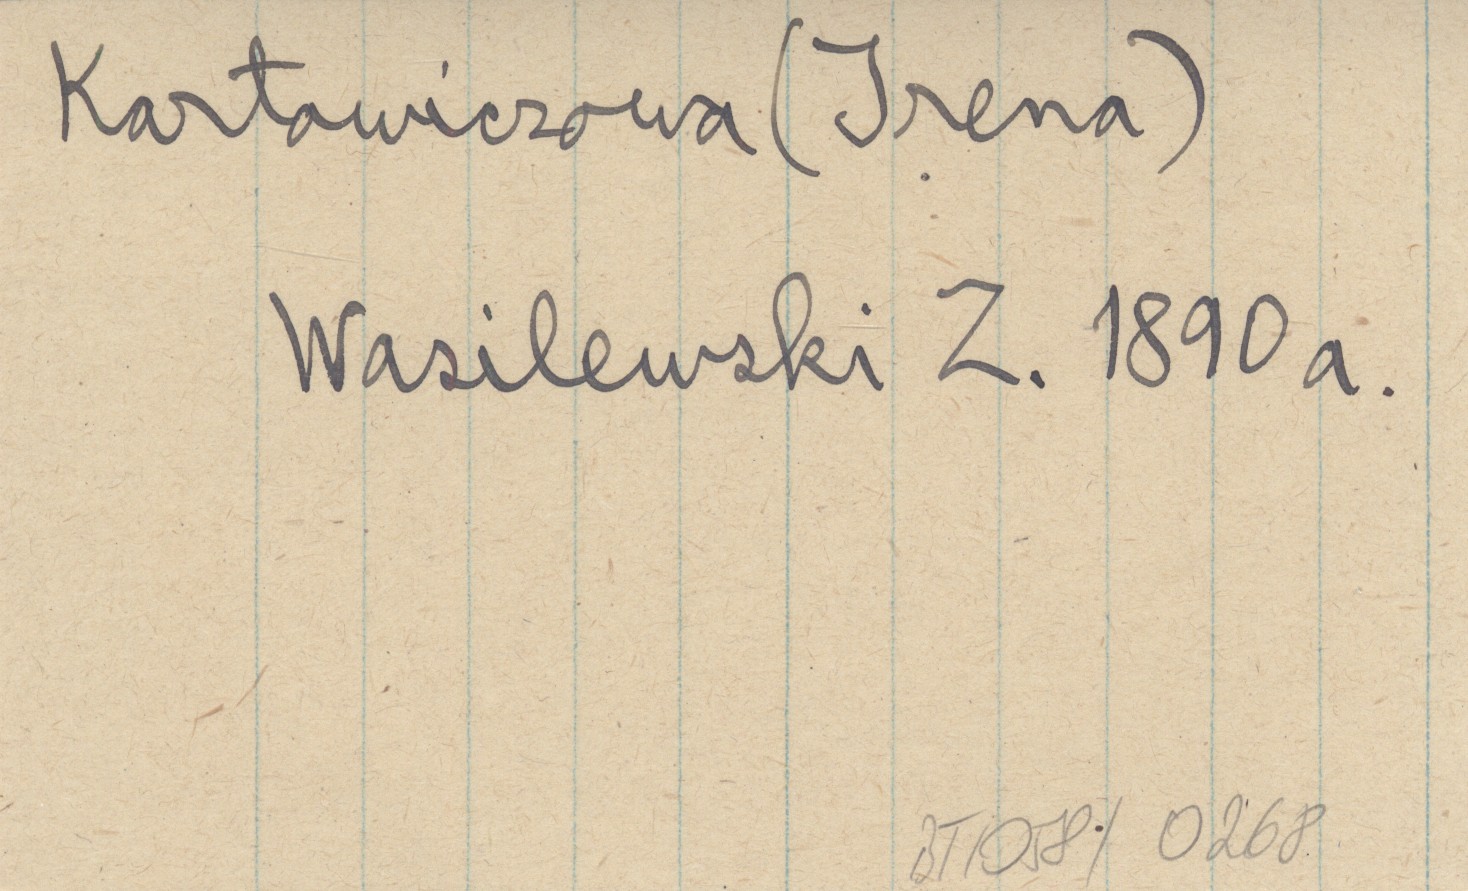 Karłowiczowa (Irena)
Wasilewski Z. 1890 a.
BT/058/ 0268